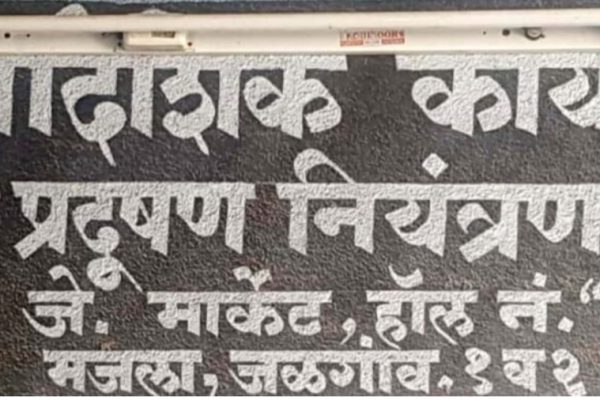 प्रादेशिक कार्य
प्रदूषण नियंत्रण
जे. मार्केट, हॉल नं. "
मजला, जळगांव. १ व २